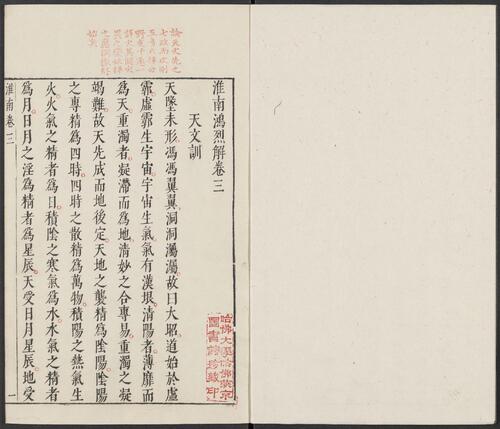 論天文先之
七政而次則
五音六律
始矣
淮南鴻烈解卷三
天文訓
天墬未形馮馮翼翼洞洞灟灟故曰大昭道始於虛
霩虛霩生宇宙宇宙生氣氣有漢垠清陽者薄靡而
爲天重濁者凝滯而爲地清妙之合專易重濁之凝
竭難故天先成而地後定天地之襲精爲陰陽陰陽
之專精爲四時四時之散精爲萬物積陽之熱氣生
火火氣之精者爲日積陰之寒氣爲水水氣之精者
爲月日月之淫爲精者爲星辰天受日月星辰地受
淮南卷三
一
哈佛大學哈佛燕京
圖書館珍藏印